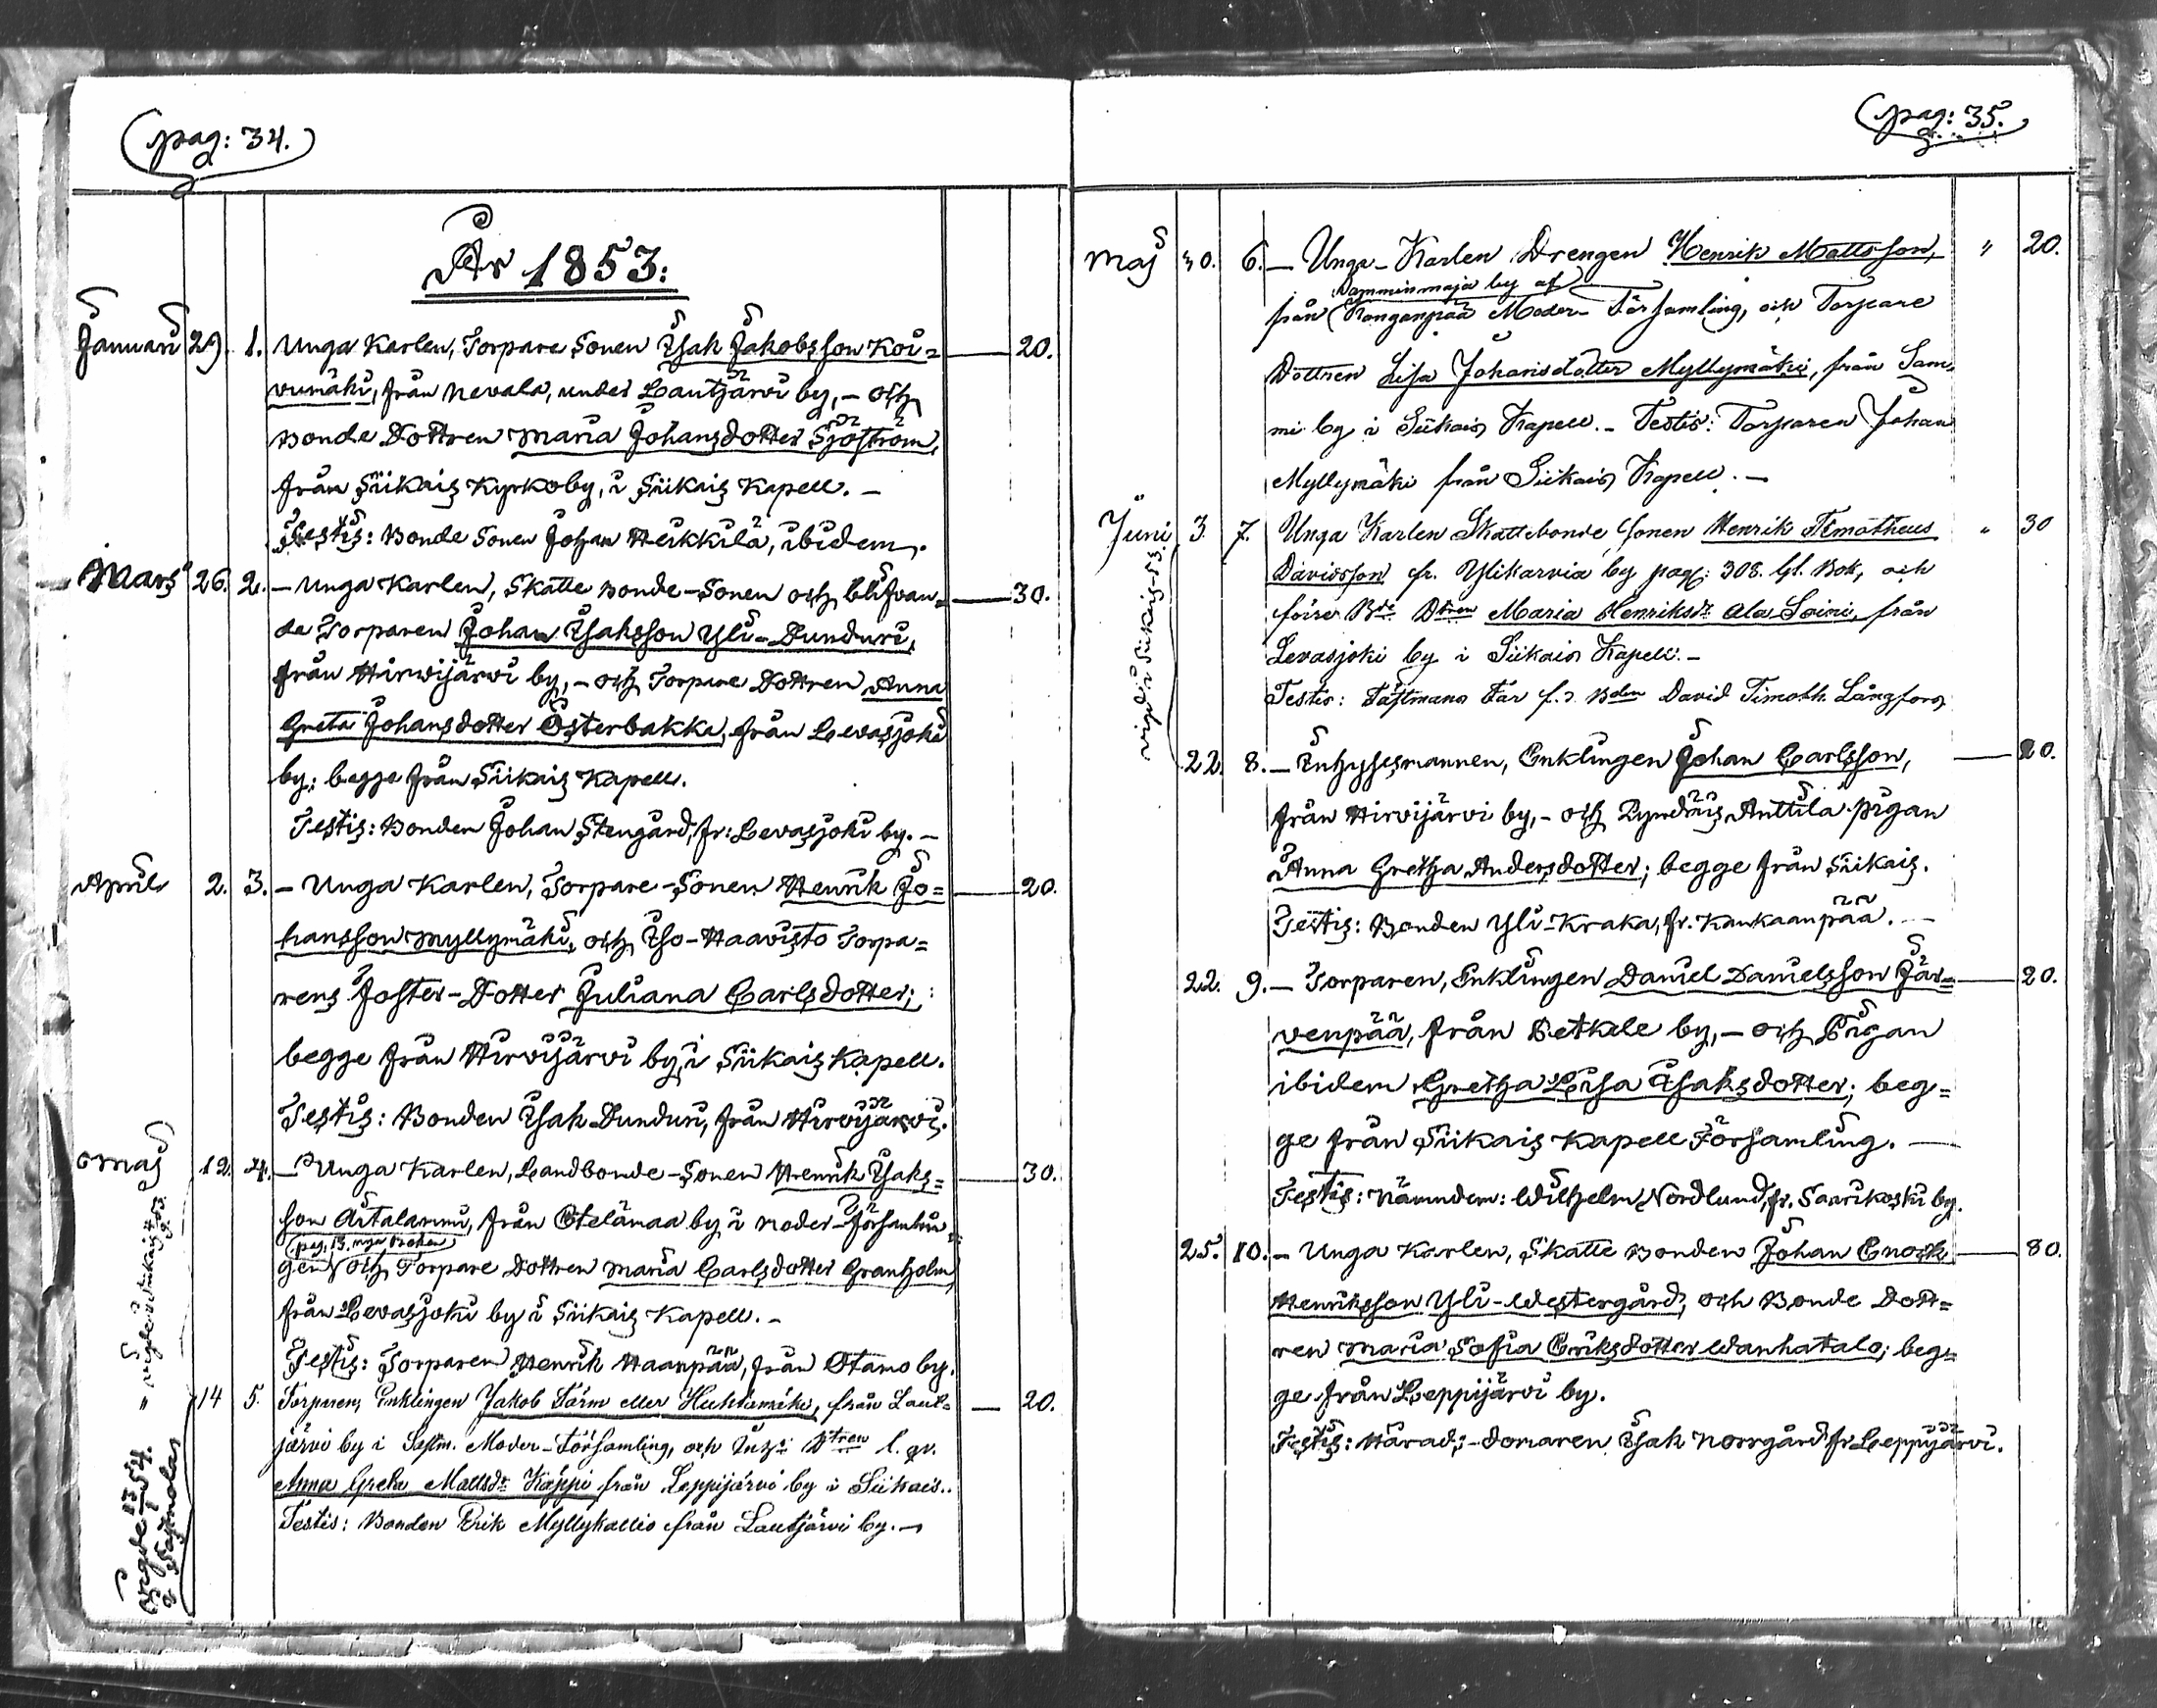 (pag: 34.)
År 1853:
Januari 29 1. Unga Karlen, Torpare Sonen Isak Jakobsson Koi= — 20.
vumäki, från Nevala, under Lautjärvi by, – och
Bonde Dottren Maria Johansdotter Sjöström,
från Siikais Kyrkoby, i Siikais Kapell. –
Testis: Bonde Sonen Johan Heikkilä, ibidem.
Mars 26. 2. – Unga Karlen, Skatte Bonde-Sonen och blifvan= — 30.
de Torparen Johan Isaksson Yli-Dunduri,
från Hirvijärvi by, – och Torpare Dottren Anna
Greta Johansdotter Österbakka, från Levasjoki
by; begge från Siikais Kapell.
Testis: Bonden Johan Stengård, fr: Levasjoki by. –
April 2. 3. – Unga Karlen, Torpare-Sonen Henrik Jo= — 20.
hansson Myllymäki, och Iso-Haavisto Torpa=
rens Foster-Dotter Juliana Carlsdotter;
begge från Hirvijärvi by, i Siikais Kapell.
Testis: Bonden Isak Dunduri, från Hirvijärvi.
Maj 12. 4. – Unga Karlen, Landbonde-Sonen Henrik Isaks= — 30.
son Aitalammi, från Otelämaa by i Moder-Församlin=
pag. 13. nya Boken
gen och Torpare Dottren Maria Carlsdotter Granholm,
från Levasjoki by i Siikais Kapell. –
Testis: Torparen Henrik Haanpää, från Otamo by.
14 5. Torparen, Enklingen Jakob Törm eller Huhtamäki, från Laut= — 20.
järvi by i Sastm. Moder-Församling, och Inhs: Dtren l. qv.
Anna Greta Mattsdr Käppi från Leppijärvi by i Siikais.
Testis: Bonden Erik Myllykallio från Lautjärvi by. –
= vigde i Siikais
Vigde 54.
i Sastmola
(pag: 35.)
Maj 30. 6. – Unga-Karlen Drengen Henrik Mattsson, " 20.
Tamminmaja by af
från Kanganpää Moder-Församling, och Torpare
Dottren Lisa Johansdotter Myllymäki, från Sam=
mi by i Siikais Kapell. – Testis: Torparen Johan
Myllymäki från Siikais Kapell. –
Juni 3. 7. Unga Karlen Skattebonde Sonen Henrik Timotheus " 30
Davidsson fr. Ylikarvia by pag: 308. gl. Bok, och
förre Bde Dtren Maria Henriksdr Ala Soini, från
Levasjoki by i Siikais Kapell. –
Testis: Fästmans Far f.d Bden David Timoth. Långfors
vigd i Siikais 53.
22. 8. – Inhysesmannen, Enklingen Johan Carlsson, — 20.
från Hirvijärvi by, – och Pyndäis Anttila pigan
Anna Gretha Andersdotter; begge från Siikais.
Testis: Bonden Yli-Kraka, fr. Kankaanpää. —
22. 9. – Torparen, Enklingen Daniel Danielsson Jär= — 20.
venpää, från Betkele by, – och Pigan
ibidem Gretha Lisa Isaksdotter; beg=
ge från Siikais Kapell Församling. —
Testis: Nämnden: Wilhelm Nordlund, fr. Saarikoski by.
25. 10. – Unga Karlen, Skatte Bonden Johan Enock — 80.
Henriksson Yli-Westergård, och Bonde Dott=
ren Maria Sofia Eriksdotter Wanhatalo; beg=
ge från Leppijärvi by.
Testis: Härads-domaren Isak Norrgård fr Leppijärvi.